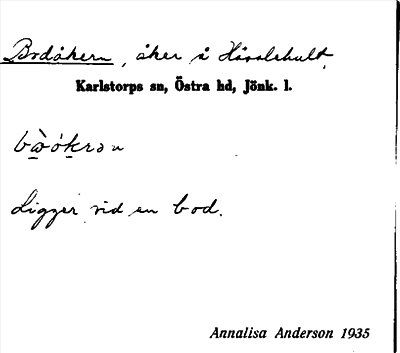 Bodåkern, åker å Håralehult,
Karlstorps sn, Östra hd, Jönk. l.
Ligger vid en bod.
Annalisa Anderson 1935